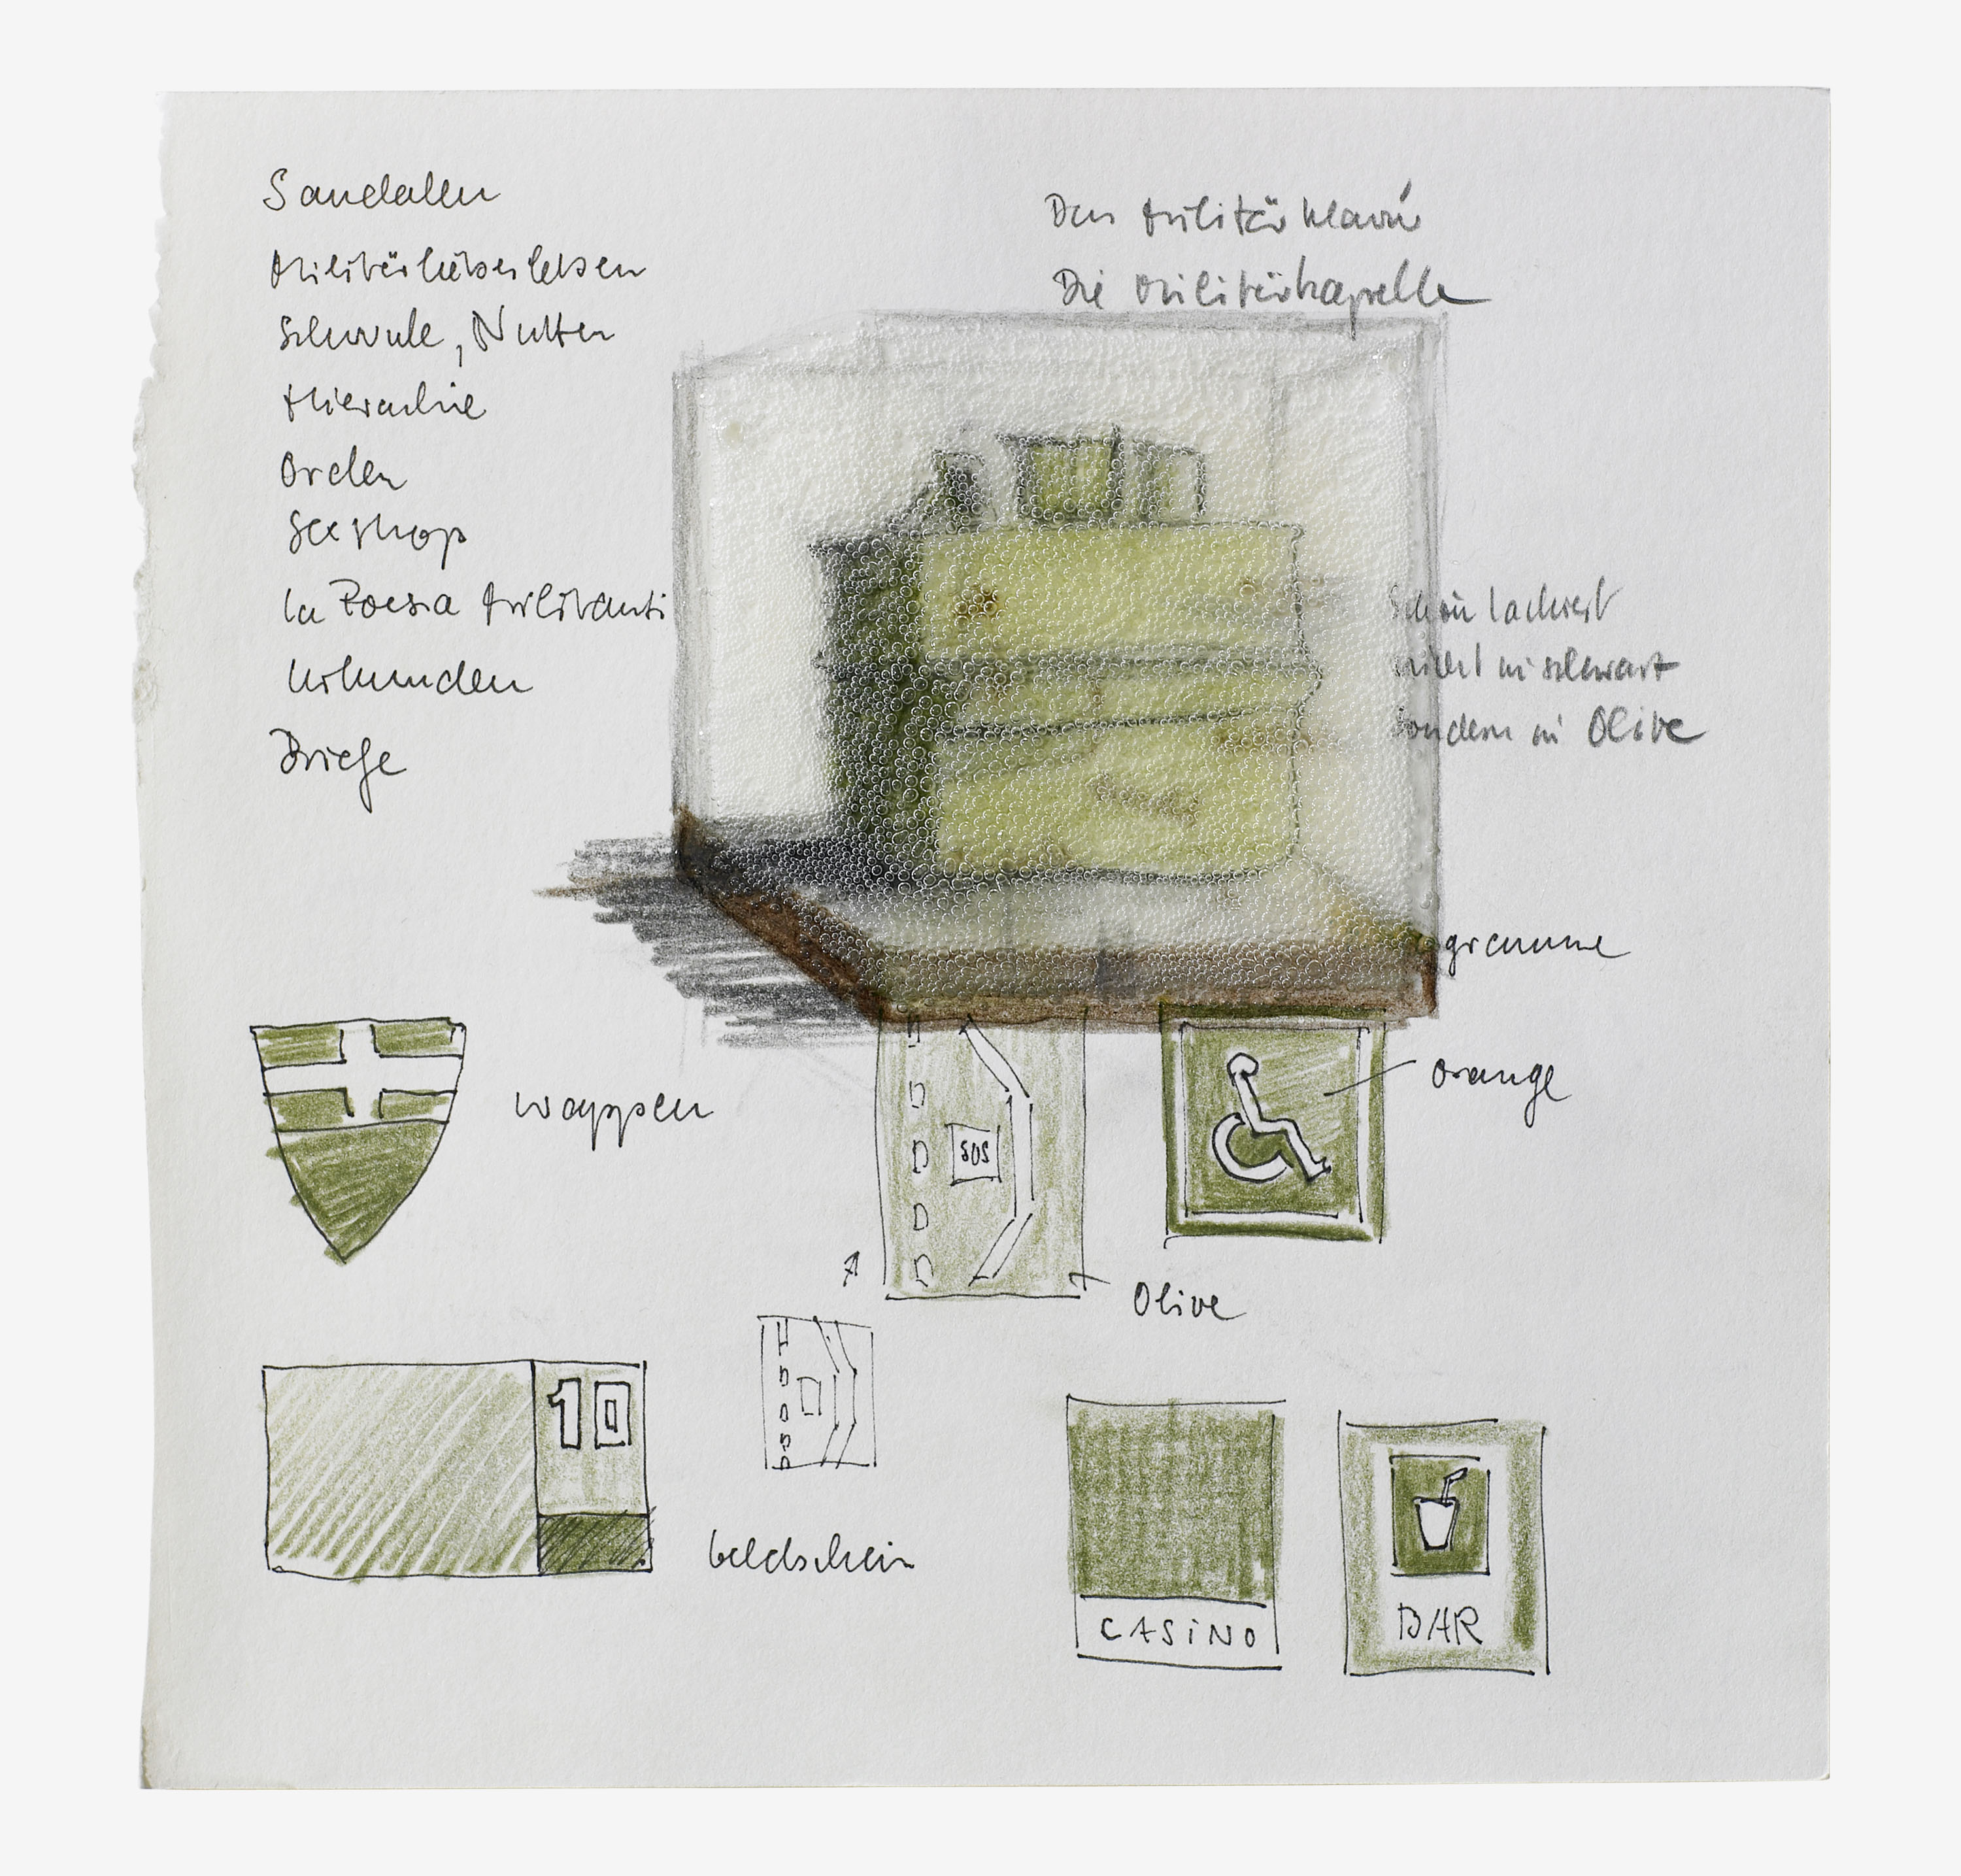 Sandalen
Militärküberleben
Schwule, Nutten
Hierachie
Orden
Sexshop
la Poesia Militanti
Urkunden
Briefe
Das Militärklavier
Die Militärkapelle
Schön lackiert
nicht in schwarz
sondern in Olive
gramme
Wappen
SOS
orange
Olive
10
Geldschein
CASiNO
BAR